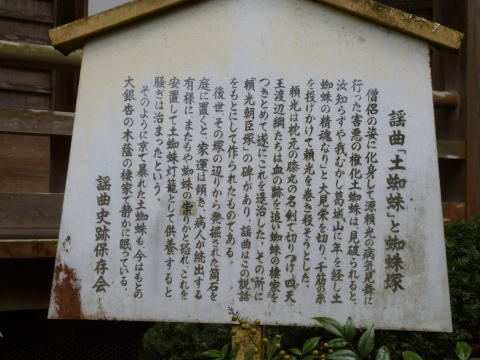 謡曲「土蜘蛛」と蜘蛛塚
僧侶の姿に化身して源頼光の病気見舞に
行った害悪の権化土蜘蛛は、見破られると、
汝知らずや我むかし葛城山に年を経し土
蜘蛛の精魂なり」と大見栄を切り、千筋の糸
を投げかけて頼光を巻き殺そうとした。
頼光は枕元の膝丸の名剣で切りつけ四天
王渡辺綱たちは血の跡を追い蜘蛛の棲家を
つきとめて遂にこれを退治した。その所に
「頼光朝臣塚」の碑があり、謡曲はこの説話
をもとにして作られたものである。
後世その塚の辺りから発掘された筒石を
庭に置くと、家運は傾き、病人が続出する
有様に、またもや蜘蛛の祟りかと恐れ、これを
安置して土蜘蛛灯籠として供養すると
騒ぎは治まったという。
そのように京で暴れた土蜘蛛も、今はもとの
大銀杏の木蔭の棲家で静かに眠っている。
謡曲史跡保存会